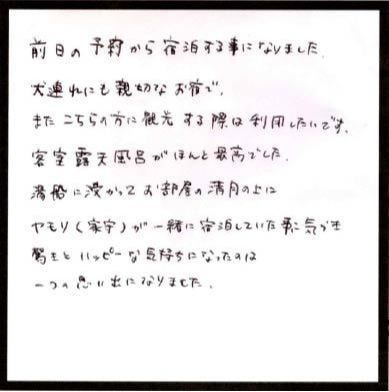 前日の予約から宿泊する事になりました.
犬連れにも親切なお宿で.
またこちらの方に観光する際は利用したいです.
客室露天風呂がほんと最高でした.
湯船に浸かってお部屋の満月の上に
ヤモリ(家守)が一緒に宿泊していた事に気づき
驚きとハッピーな気持ちになったのは
一つの思い出になりました.